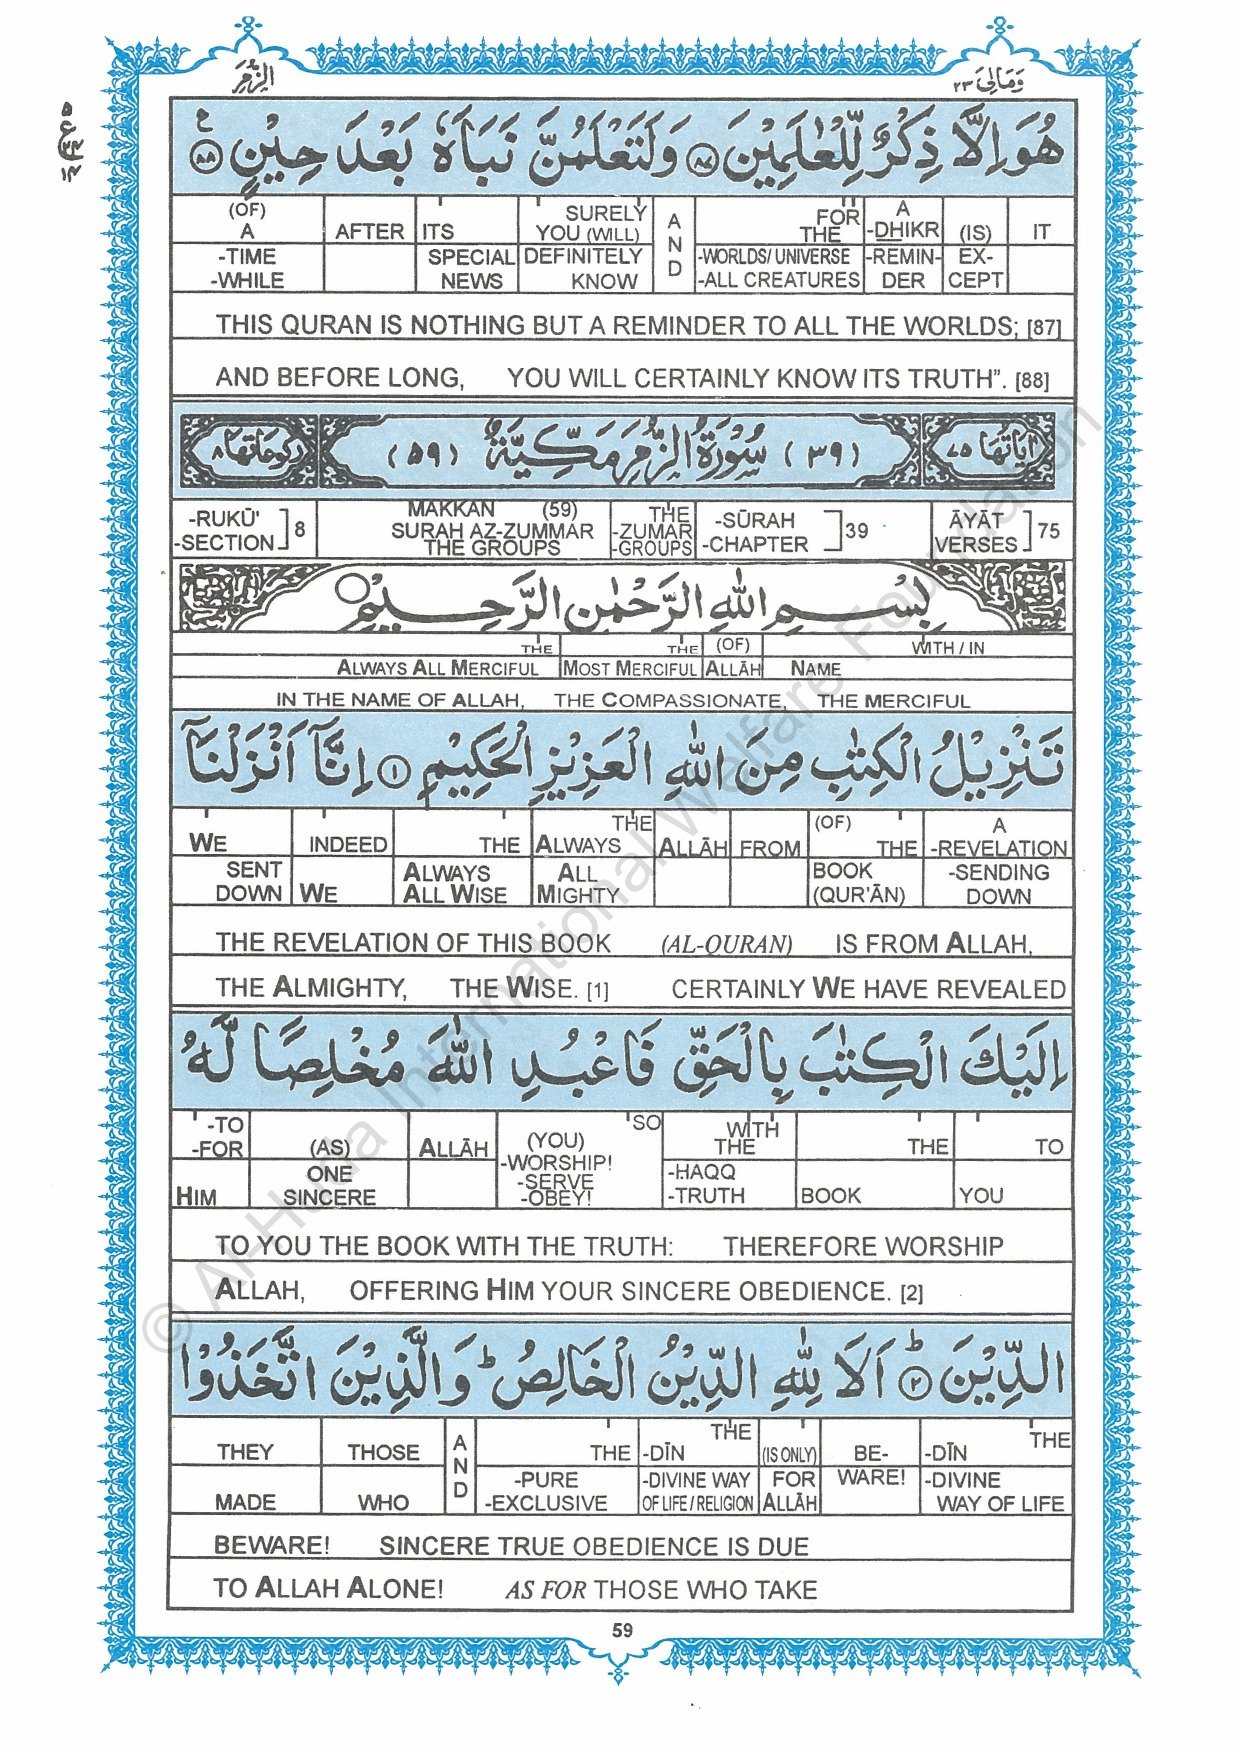 الزمر
ومالی ٢٣
هُوَ اِلَّا ذِكْرٌ لِّلْعٰلَمِيْنَ ٨٧ وَلَتَعْلَمُنَّ نَبَاَهٗ بَعْدَ حِيْنٍ ٨٨
(OF) A AFTER ITS SURELY YOU (WILL) AND FOR THE A -DHIKR (IS) IT
-TIME -WHILE SPECIAL NEWS DEFINITELY KNOW -WORLDS/ UNIVERSE -ALL CREATURES -REMIN-DER EX-CEPT
THIS QURAN IS NOTHING BUT A REMINDER TO ALL THE WORLDS; [87]
AND BEFORE LONG, YOU WILL CERTAINLY KNOW ITS TRUTH”. [88]
اٰيَاتُهَا ٧٥ (٣٩) سُوْرَةُ الزُّمَرِ مَكِّيَّةٌ (٥٩) رُكُوْعَاتُهَا ٨
-RUKŪ' -SECTION ] 8 MAKKAN (59) SURAH AZ-ZUMMAR THE GROUPS THE -ZUMAR -GROUPS -SŪRAH -CHAPTER ] 39 ĀYĀT VERSES ] 75
بِسْمِ اللهِ الرَّحْمٰنِ الرَّحِيْمِ
THE THE (OF) WITH / IN
ALWAYS ALL MERCIFUL MOST MERCIFUL ALLĀH NAME
IN THE NAME OF ALLAH, THE COMPASSIONATE, THE MERCIFUL
تَنْزِيْلُ الْكِتٰبِ مِنَ اللهِ الْعَزِيْزِ الْحَكِيْمِ ١ اِنَّآ اَنْزَلْنَآ
WE INDEED THE THE ALWAYS ALLĀH FROM (OF) THE A -REVELATION
SENT DOWN WE ALWAYS ALL WISE ALL MIGHTY BOOK (QUR'ĀN) -SENDING DOWN
THE REVELATION OF THIS BOOK (AL-QURAN) IS FROM ALLAH,
THE ALMIGHTY, THE WISE. [1] CERTAINLY WE HAVE REVEALED
اِلَيْكَ الْكِتٰبَ بِالْحَقِّ فَاعْبُدِ اللهَ مُخْلِصًا لَّهُ
-TO -FOR (AS) ALLĀH SO (YOU) -WORSHIP! -SERVE -OBEY! WITH THE THE TO
HIM ONE SINCERE -HAQQ -TRUTH BOOK YOU
TO YOU THE BOOK WITH THE TRUTH: THEREFORE WORSHIP
ALLAH, OFFERING HIM YOUR SINCERE OBEDIENCE. [2]
الدِّيْنَ ٢ اَلَا لِلّٰهِ الدِّيْنُ الْخَالِصُ ؕ وَالَّذِيْنَ اتَّخَذُوْا
THEY THOSE AND THE THE -DĪN (IS ONLY) BE- THE -DĪN
MADE WHO -PURE -EXCLUSIVE -DIVINE WAY OF LIFE / RELIGION FOR ALLĀH WARE! -DIVINE WAY OF LIFE
BEWARE! SINCERE TRUE OBEDIENCE IS DUE
TO ALLAH ALONE! AS FOR THOSE WHO TAKE
59
© Al-Huda International Welfare Foundation